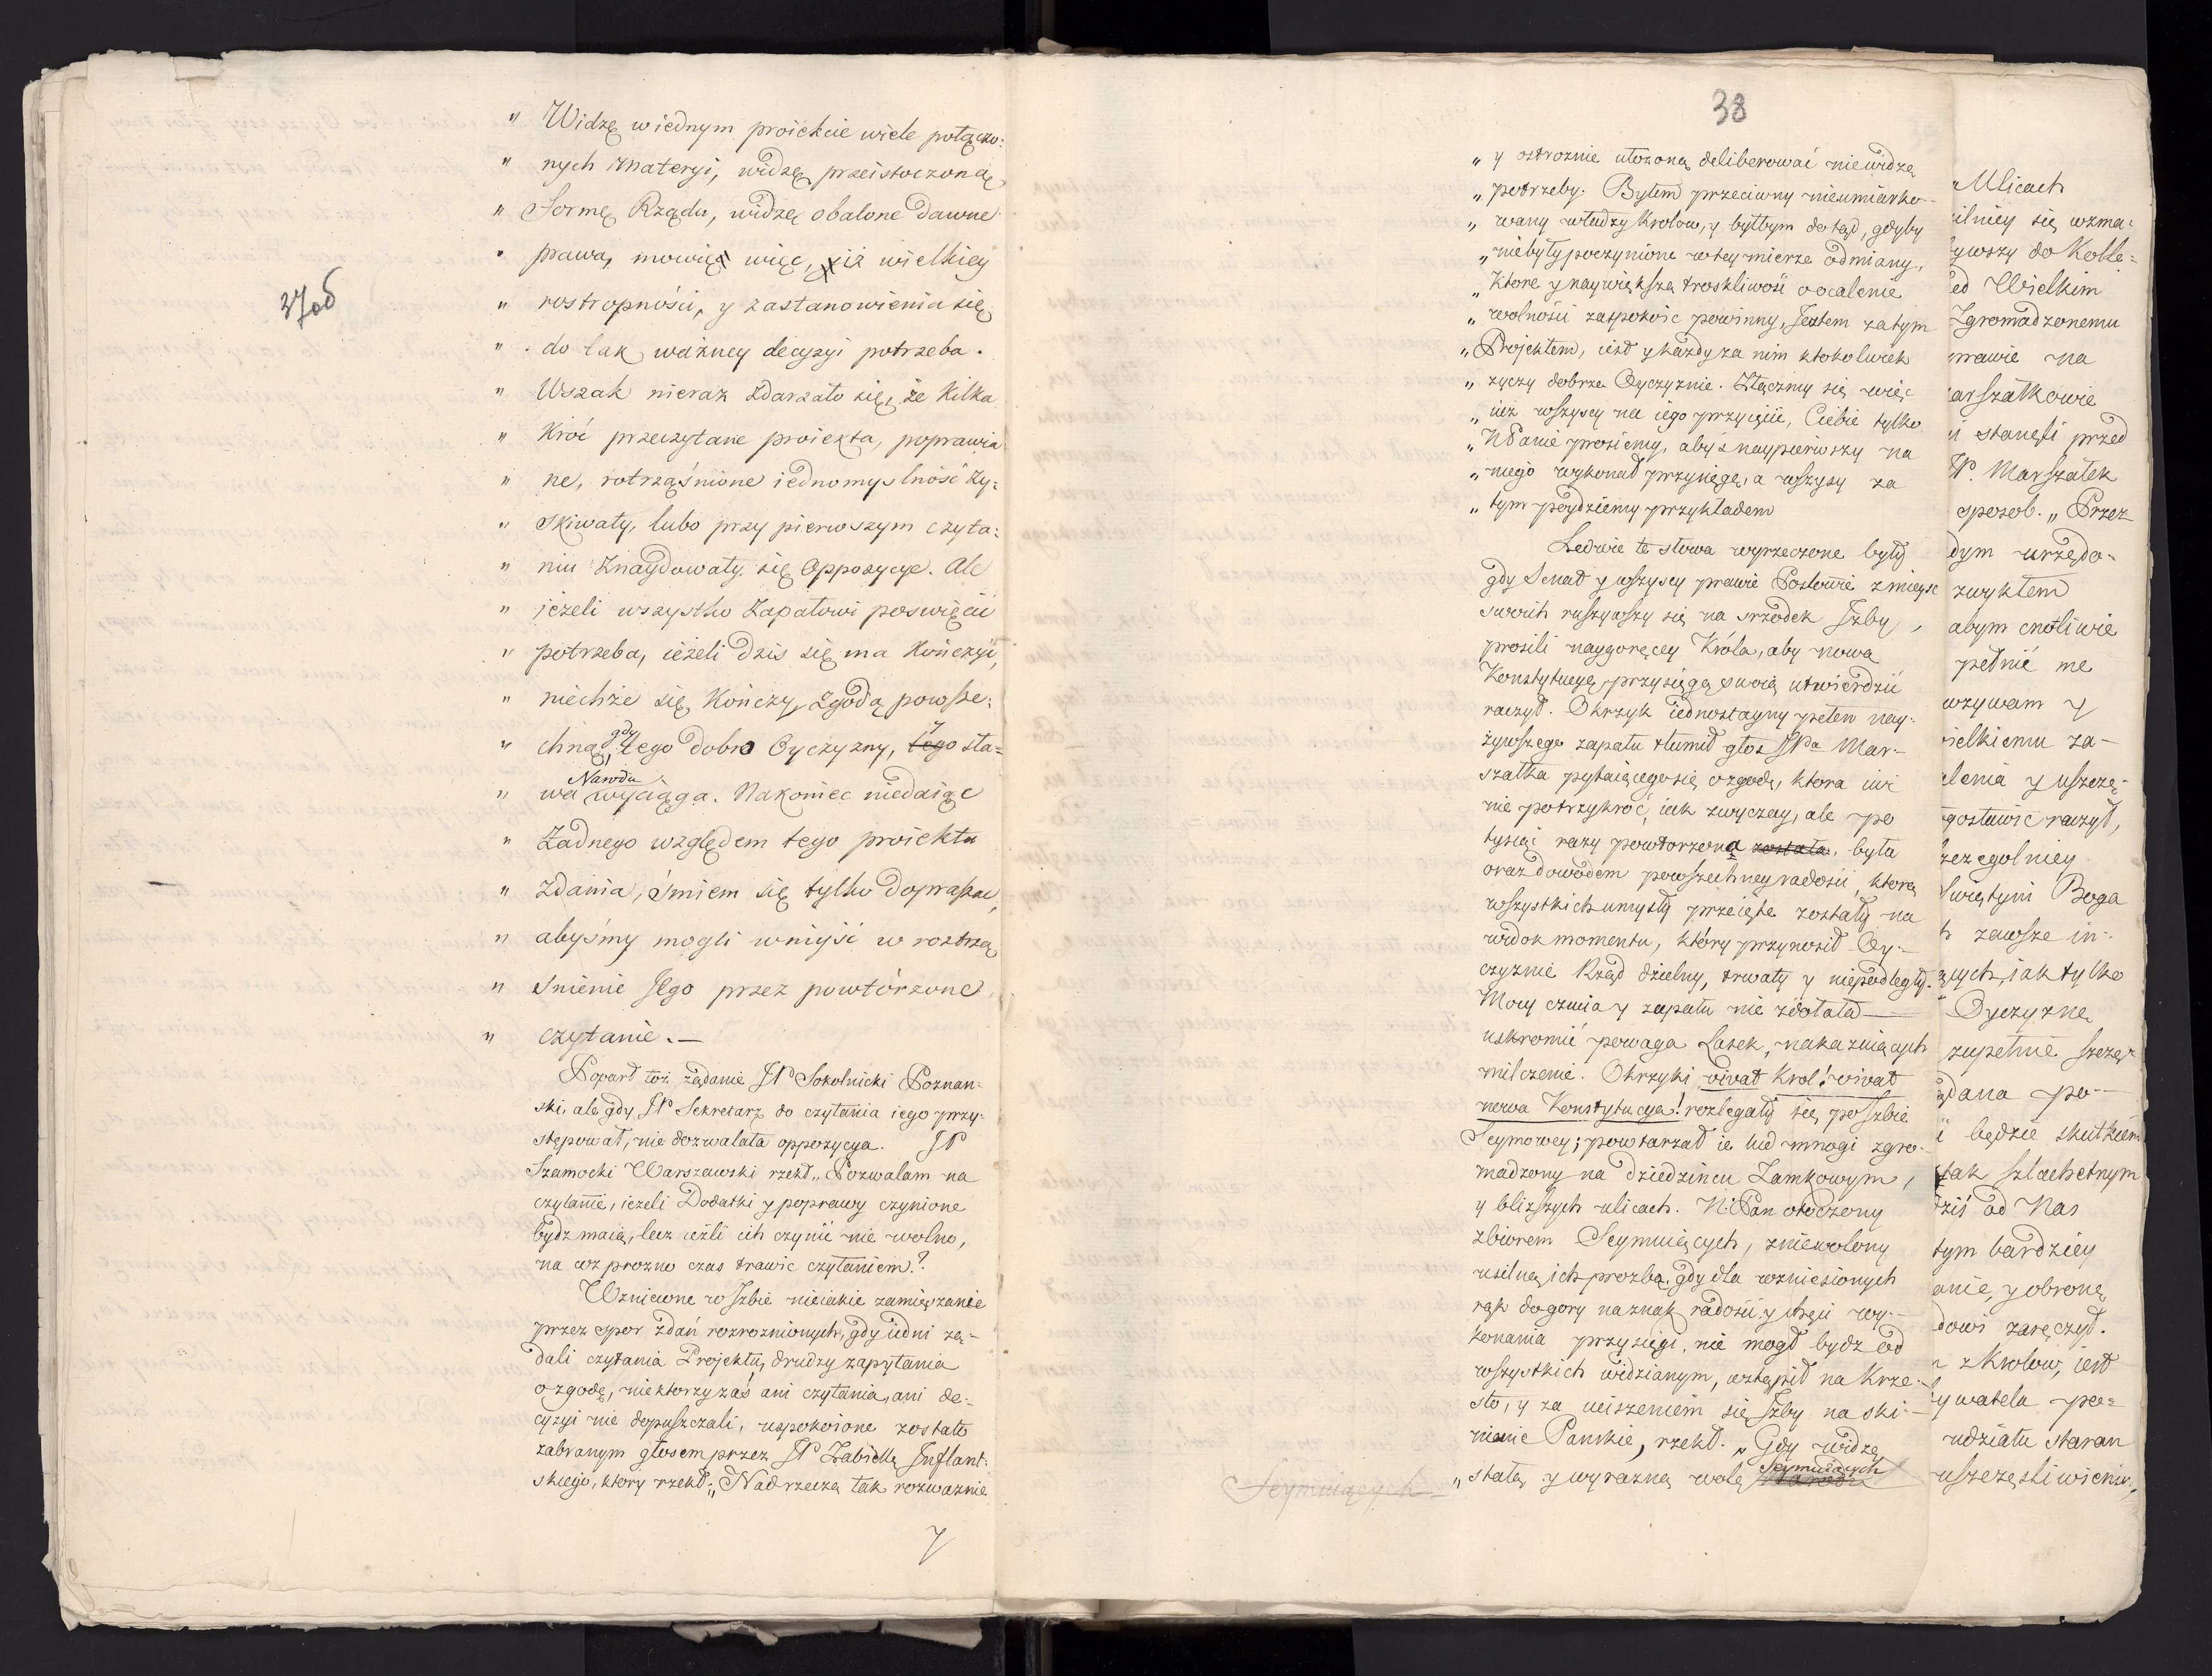 37об
" Widzę w iednym proiekcie wiele połączo:
" nych materyi, widzę przeistoczoną
" Formę Rządu, widzę obalone dawne
" prawa, mowię więc, iż wielkiey
" rostropności, y zastanowienia się
" do tak ważney decyzyi potrzeba.
" Wszak nieraz zdarzało się, że kilka
" kroć przeczytane proiekta, poprawia
" ne, rotrząśnione iednomyslność zy:
" skiwały, lubo przy pierwszym czyta:
" niu znaydowały się Oppozycye. Ale
" jeżeli wszystko zapałowi poswięcić
" potrzeba, ieżeli dzis się ma kończyć,
" niechże się kończy zgodą powsze:
" chną, gdy tego dobro Oyczyzny, tego y sta=
" wa Narodu wyciąga. Nakoniec niedaiąc
" Żadnego względem tego proiektu
" zdania, śmiem się tylko dopraszac,
" abyśmy mogli wniyść w roztrzą
" snienie Jego przez powtórzone
" czytanie. —
Poparł toż żądanie JP Sokolnicki Poznan:
ski, ale gdy JP Sekretarz do czytania iego przy:
stępował, nie dozwalała oppozycya. JP
Szamocki Warszawski rzekł „ Pozwalam na
czytanie, ieżeli Dodatki y poprawy czynione
bydz maią, lecz ieżli ich czynić nie wolno,
na coz prozno czas trawic czytaniem?.
Wzniecone w Izbie nieiakie zamięszanie
przez spor zdań rozroznionych, gdy iedni zą-
dali czytania Projektu, drudzy zapytania
o zgodę, niektorzy zaś ani czytania, ani de-
cyzyi nie dopuszczali, uspokoione zostało
zabranym głosem przez JP Zabiełłę Inflant:
skiego, ktory rzekł: „ Nad rzeczą tak rozwaznie
y
38
„ y ostroznie ułozoną deliberować nie widzę
„ potrzeby. Byłem przeciwny nieumiarko-
„ waney władzy Krolow, y byłbym dotąd, gdyby
„ niebyły poczynione w tey mierze odmiany,
„ Ktore y naywiększą troskliwość o ocalenie
„ wolności zaspokoic powinny, Jestem zatym
„ Projektem, iest y kazdy za nim ktokolwiek
„ zyczy dobrze Oyczyznie. Złączmy się więc
„ iuz wszyscy na iego przyięcie, Ciebie tylko
„ N Panie prosiemy, abys naypierwszy na
„ niego wykonał przysięgę, a wszyscy za
„ tym poydziemy przykładem
Ledwie te słowa wyrzeczone były
gdy Senat y wszyscy prawie Posłowie z mieysc
swoich ruszywszy się na srzodek Izby,
prosili naygoręcey Króla, aby nową
Konstytucyę, przysięgą swoią utwierdzić
raczył. Okrzyk iednostayny pełen nay:
żywszego zapału tłumił głos JPa Mar-
szałka pytaiącego się o zgodę, ktora iuż
nie potrzykroć, iak zwyczay, ale po
tysiąc razy powtorzona została, była
oraz dowodem powszechney radości, ktorą
wszystkich umysły przeięte zostały na
widok momentu, który przynosił Oy:
czyznie Rząd dzielny, trwały y niepodległy.
Mocy czucia y zapału nie zdołała —
uskromić powaga Lasek, nakazuiących
milczenie. Okrzyki vivat Krol! vivat
nowa Konstytucya! rozlegały się po Izbie
Seymowey; powtarzał ie lud mnogi zgro-
madzony na dziedzincu Zamkowym,
y blizszych ulicach. N. Pan otoczony
zbiorem Seymuiących, zniewolony
usilną ich prozbą, gdy dla wzniesionych
rąk do gory na znak radości y chęci wy-
konania przysięgi, nie mogł bydz od
wszystkich widzianym, wstąpił na krze-
sło, y za uciszeniem się Izby na ski-
nienie Pańskie, rzekł. „ Gdy widzę
„ stałą y wyrazną wolę Seymuiących Narodu
Seymuiących
Ulicach
ilniey się wzma:
ywszy do Kolle=
ed Wielkim
Zgromadzonemu
prawie na
arszałkowie
i stanęli przed
W. Marszałek
sposob. „ Przez
dym urzędo-
zwykłem
abym cnotliwie
pełnić me
wzywam y
wielkiemu za-
lenia y uszczę-
gosławić raczył,
szczegolniey
Swiętym Boga
h zawsze in-
zych, iak tylko
Oyczyznę
zupełnie szczę-
ądana po-
i będzie skutkiem
tak szlachetnym
dziś od Nas
tym bardziey
anie, y obronę
dowi zaręczył.
z Krolow, iest
ywatela po=
udziału staran
uszczęsliwieniu,